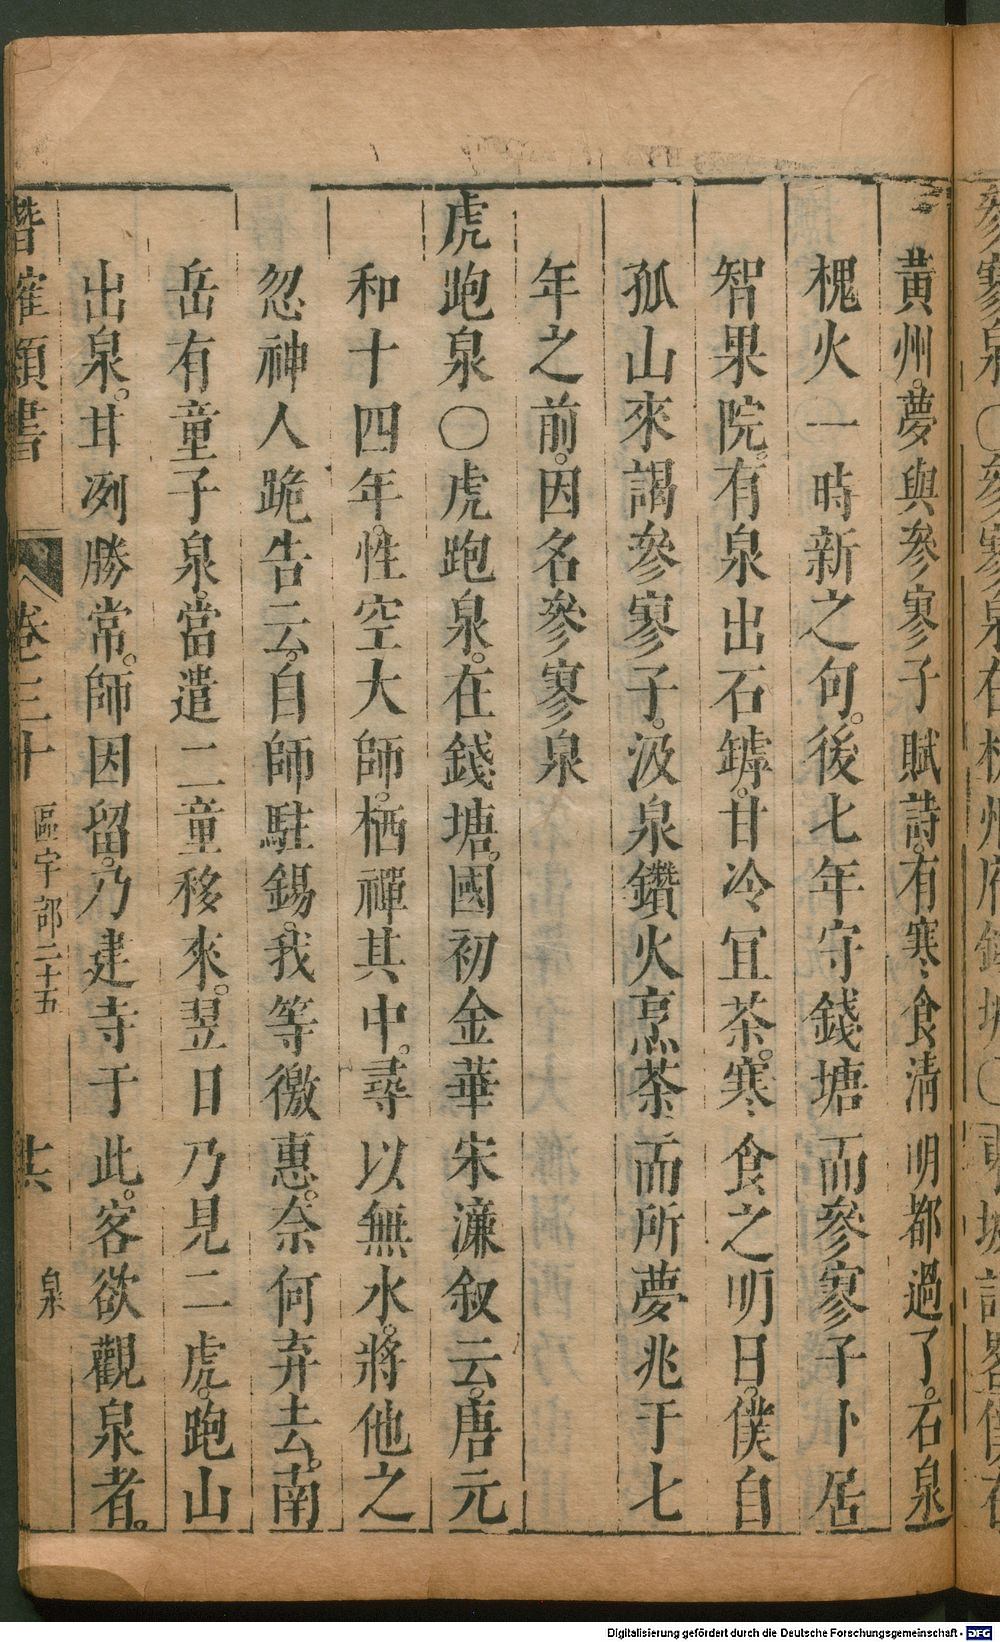 參寥泉〇參寥泉在杭州府錢塘〇東坡記畧僕在
黃州。夢與參寥子賦詩。有寒食淸明都過了。石泉
槐火一時新之句。後七年守錢塘而參寥子卜居
智果院。有泉出石罅。甘冷宜茶。寒食之明日。僕自
孤山來謁參寥子。汲泉鑽火烹茶而所夢兆于七
年之前。因名參寥泉
虎跑泉〇虎跑泉。在錢塘。國初金華宋濂叙云。唐元
和十四年。性空大師。栖禪其中。尋以無水。將他之
忽神人跪告云。自師駐錫。我等徼惠。奈何弃去。南
岳有童子泉。當遣二童移來。翌日乃見二虎。跑山
出泉。甘冽勝常。師因留。乃建寺于此。客欲觀泉者。
潛確類書 卷三十 區宇部二十五 共 泉
Digitalisierung gefördert durch die Deutsche Forschungsgemeinschaft - DFG